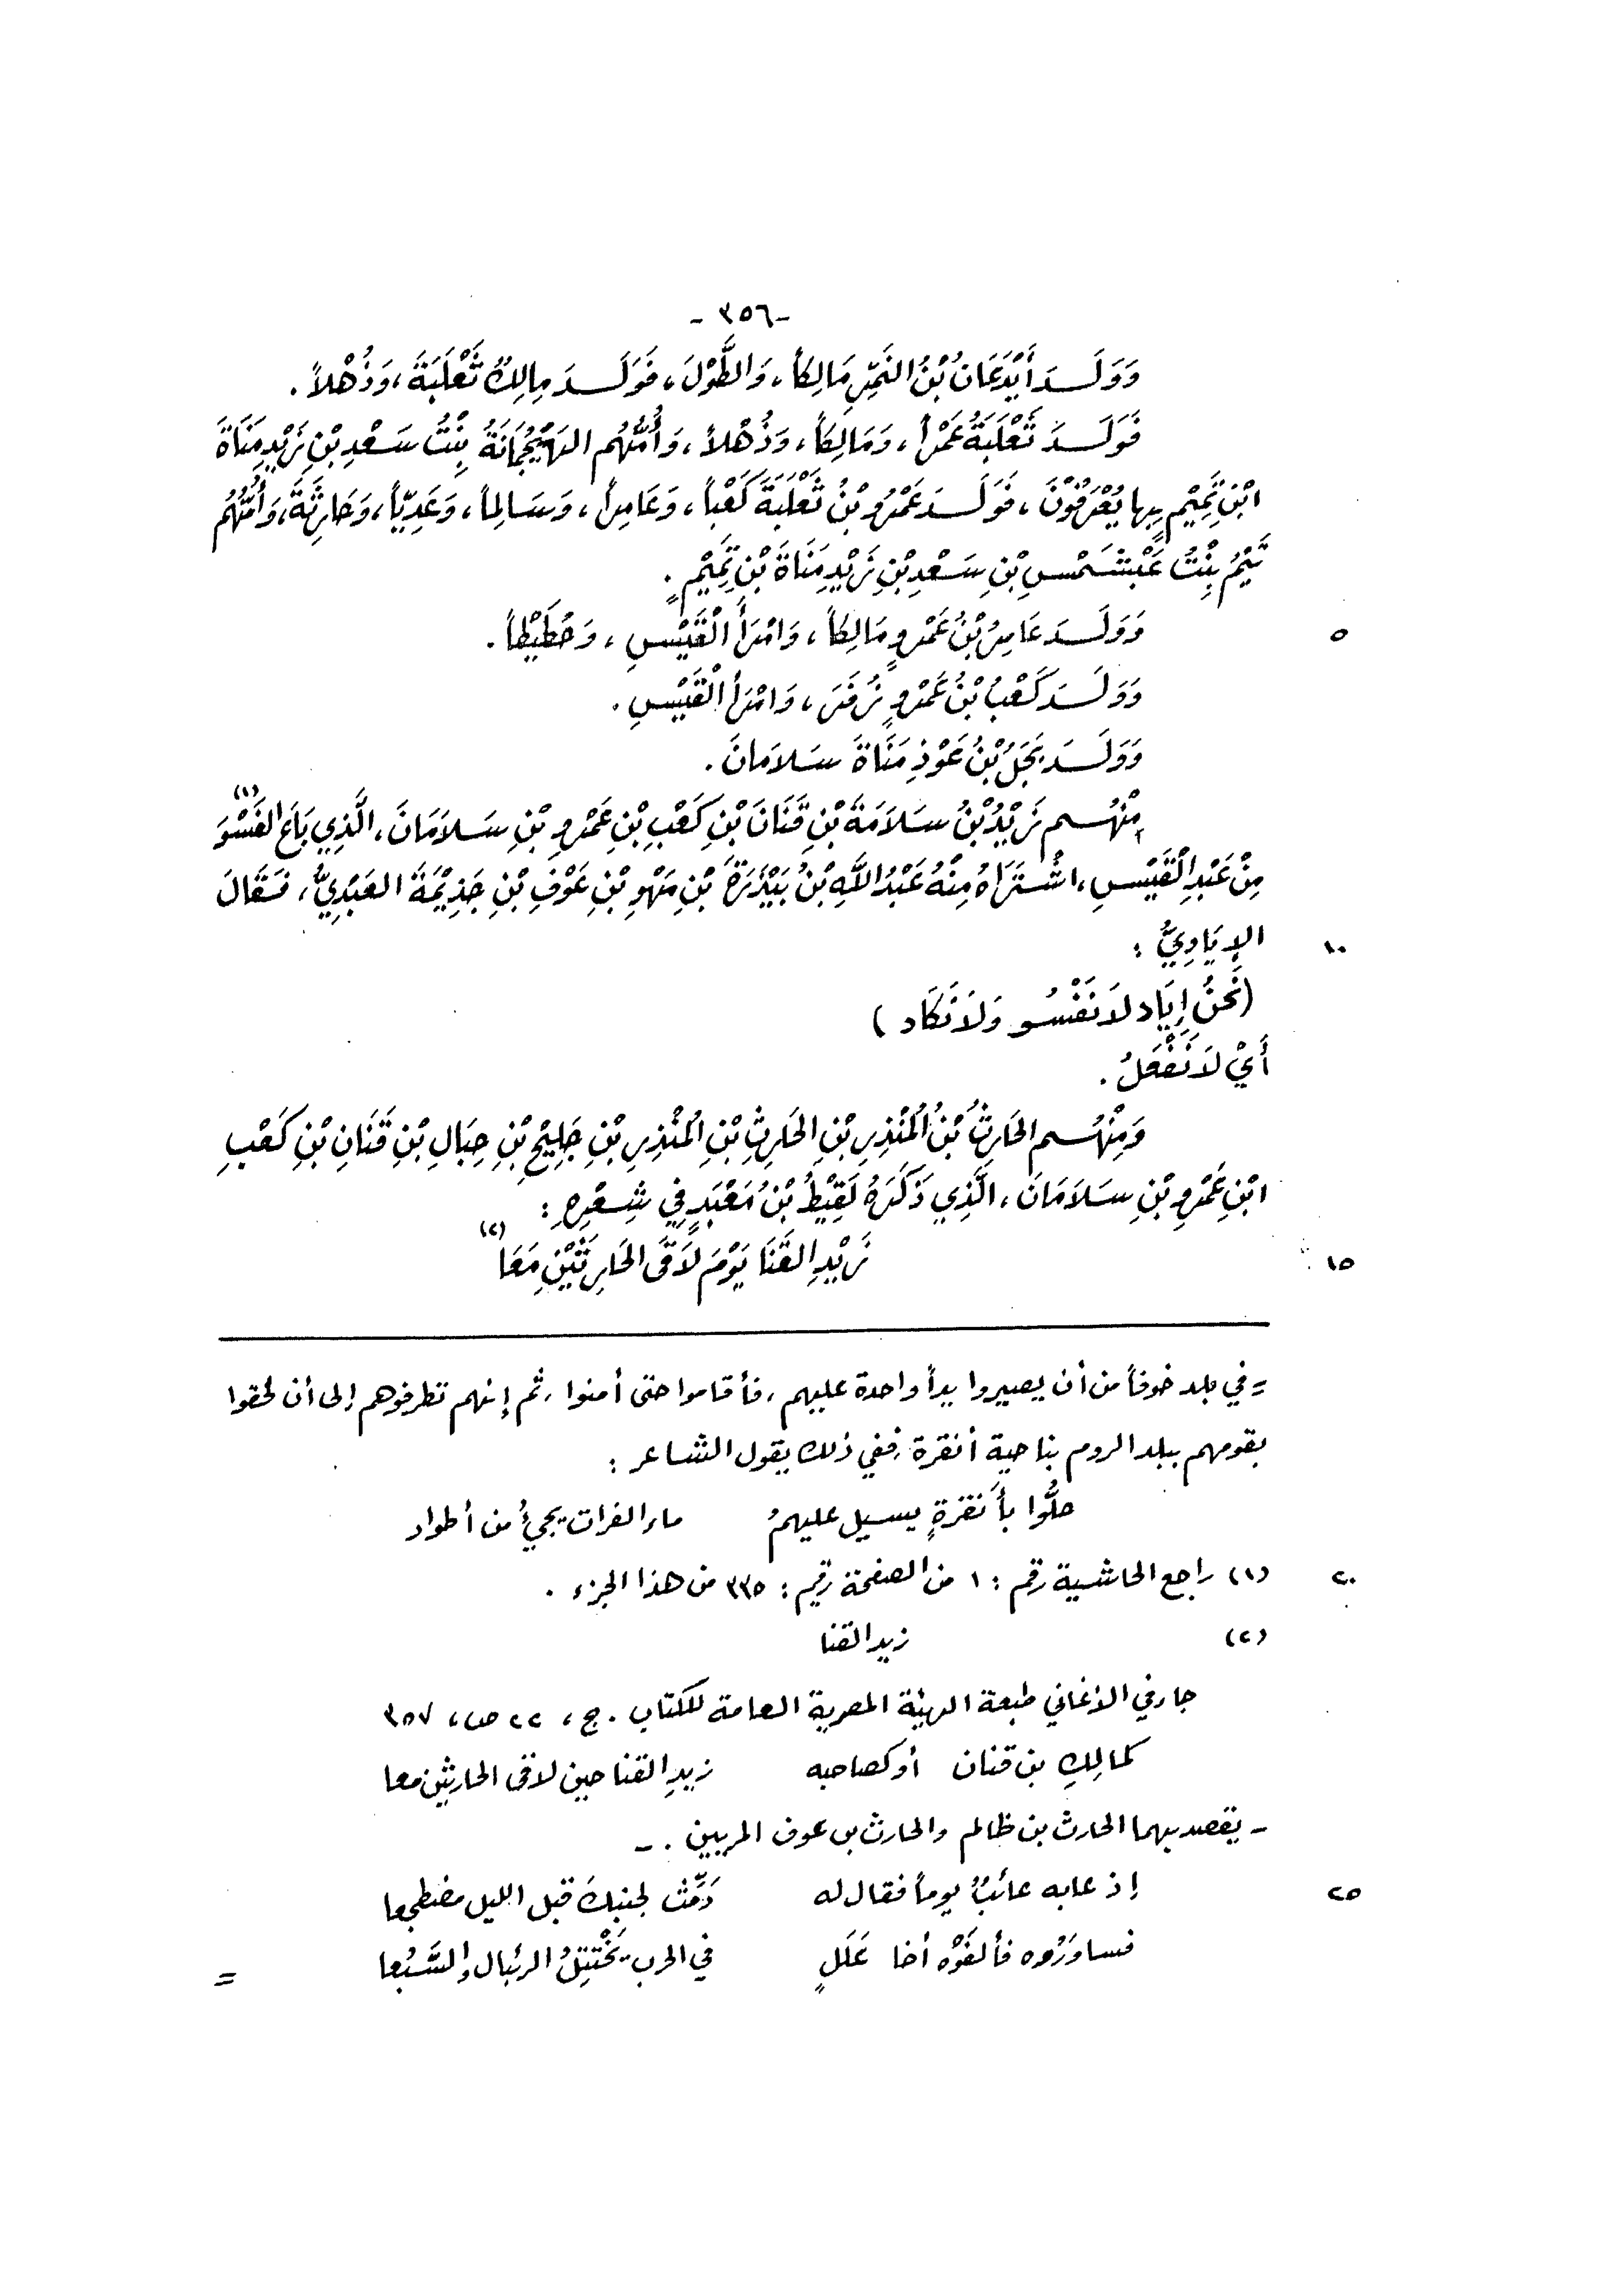 -٣٥٦-
وَوَلَدَ أَيْدَعَانُ بْنُ النَّمِرِ مَالِكاً، وَالطَّوْلَ، فَوَلَدَ مالِكُ ثَعْلَبَةَ، وَذُهْلاً.
فَوَلَدَ ثَعْلَبَةُ عَمْراً، وَمَالِكاً، وَذُهْلاً، وَأُمُّهُم الهَيْجُمَانَةُ بِنْتُ سَعْدِ بْنِ زَيْدِ مَنَاةَ
ابْنِ تَمِيْمٍ بِها يُعْرَفُوْنَ، فَوَلَدَ عَمْرُو بْنُ ثَعْلَبَةَ كَعْباً، وَعَامِراً، وَسَالِماً، وَعَدِيّاً، وَحَارِثَةَ، وَأُمُّهُم
تَيْمُ بِنْتُ عَبْشَمْسِ بْنِ سَعْدِ بْنِ زَيْدِ مَنَاةَ بْنِ تَمِيْمٍ.
٥ وَوَلَدَ عَامِرُ بْنُ عَمْرٍو مَالِكاً، وَامْرَأَ الْقَيْسِ، وَحُطَيْطاً.
وَوَلَدَ كَعْبُ بْنُ عَمْرٍو زُفَرَ، وَامْرَأَ الْقَيْسِ.
وَوَلَدَ بَجَلُ بْنُ عَوْذِ مَنَاةَ سَلاَمانَ.
مِنْهُم زَيْدُ بْنُ سَلاَمَةَ بْنِ قَنَانَ بْنِ كَعْبِ بْنِ عَمْرِو بْنِ سَلاَمَانَ، الَّذِي بَاعَ الفَسْوَ (١)
مِنْ عَبْدِ الْقَيْسِ، اشْتَرَاهُ مِنْهُ عَبْدُ اللَّهِ بْنُ بَيْذَرَةَ بْنِ مَهْوِ بْنِ عَوْفِ بْنِ جَذِيْمَةَ العَبْدِيُّ، فَقَالَ
١٠ الإِيَادِيُّ:
(نَحْنُ إِيَاد لاَ نَفْسُو وَلاَ نَكَاد)
أَيْ لاَ نَفْعَلُ.
وَمِنْهُم الحَارِثُ بْنُ الْمُنْذِرِ بْنِ الحَارِثِ بْنِ الْمُنْذِرِ بْنِ جَلِيْحِ بْنِ حِبَالِ بْنِ قَنَانِ بْنِ كَعْبِ
ابْنِ عَمْرِو بْنِ سَلاَمَانَ، الَّذِي ذَكَرَهُ لَقِيْطُ بْنُ مَعْبَدٍ فِي شِعْرِهِ:
١٥ زَيْدِ القَنَا يَوْمَ لاَقَى الحَارِثَيْنِ مَعَا (٢)
= في بلد خوفاً من أن يصيروا يداً واحدة عليهم، فأقاموا حتى أمنوا، ثم إنهم تطرفوهم إلى أن لحقوا
بقومهم ببلد الروم بناحية أنقرة، ففي ذلك يقول الشاعر:
حلُّوا بأَنقرةٍ يسيل عليهمُ ماء الفرات يجيءُ من أطواد
٢٠ (١) راجع الحاشية رقم: ١ من الصفحة رقم: ٣٣٥ من هذا الجزء.
(٢) زيد القنا
جاء في الأغاني طبعة الهيئة المصرية العامة للكتاب. ج، ٢٢ ص، ٣٥٧
كمالِكِ بن قنان أو كصاحبه زيدِ القنا حين لاقى الحارثين معا
- يقصد بهما الحارث بن ظالم والحارث بن عوف المريين. -
٢٥ إذ عابه عائبٌ يوماً فقال له دَمِّث لجنبكَ قبل الليل مضطجعا
فساوَرُوه فألفَوْه أخا عَلَلٍ في الحرب يَخْتِلُ الرئبال والسَّبُعا =